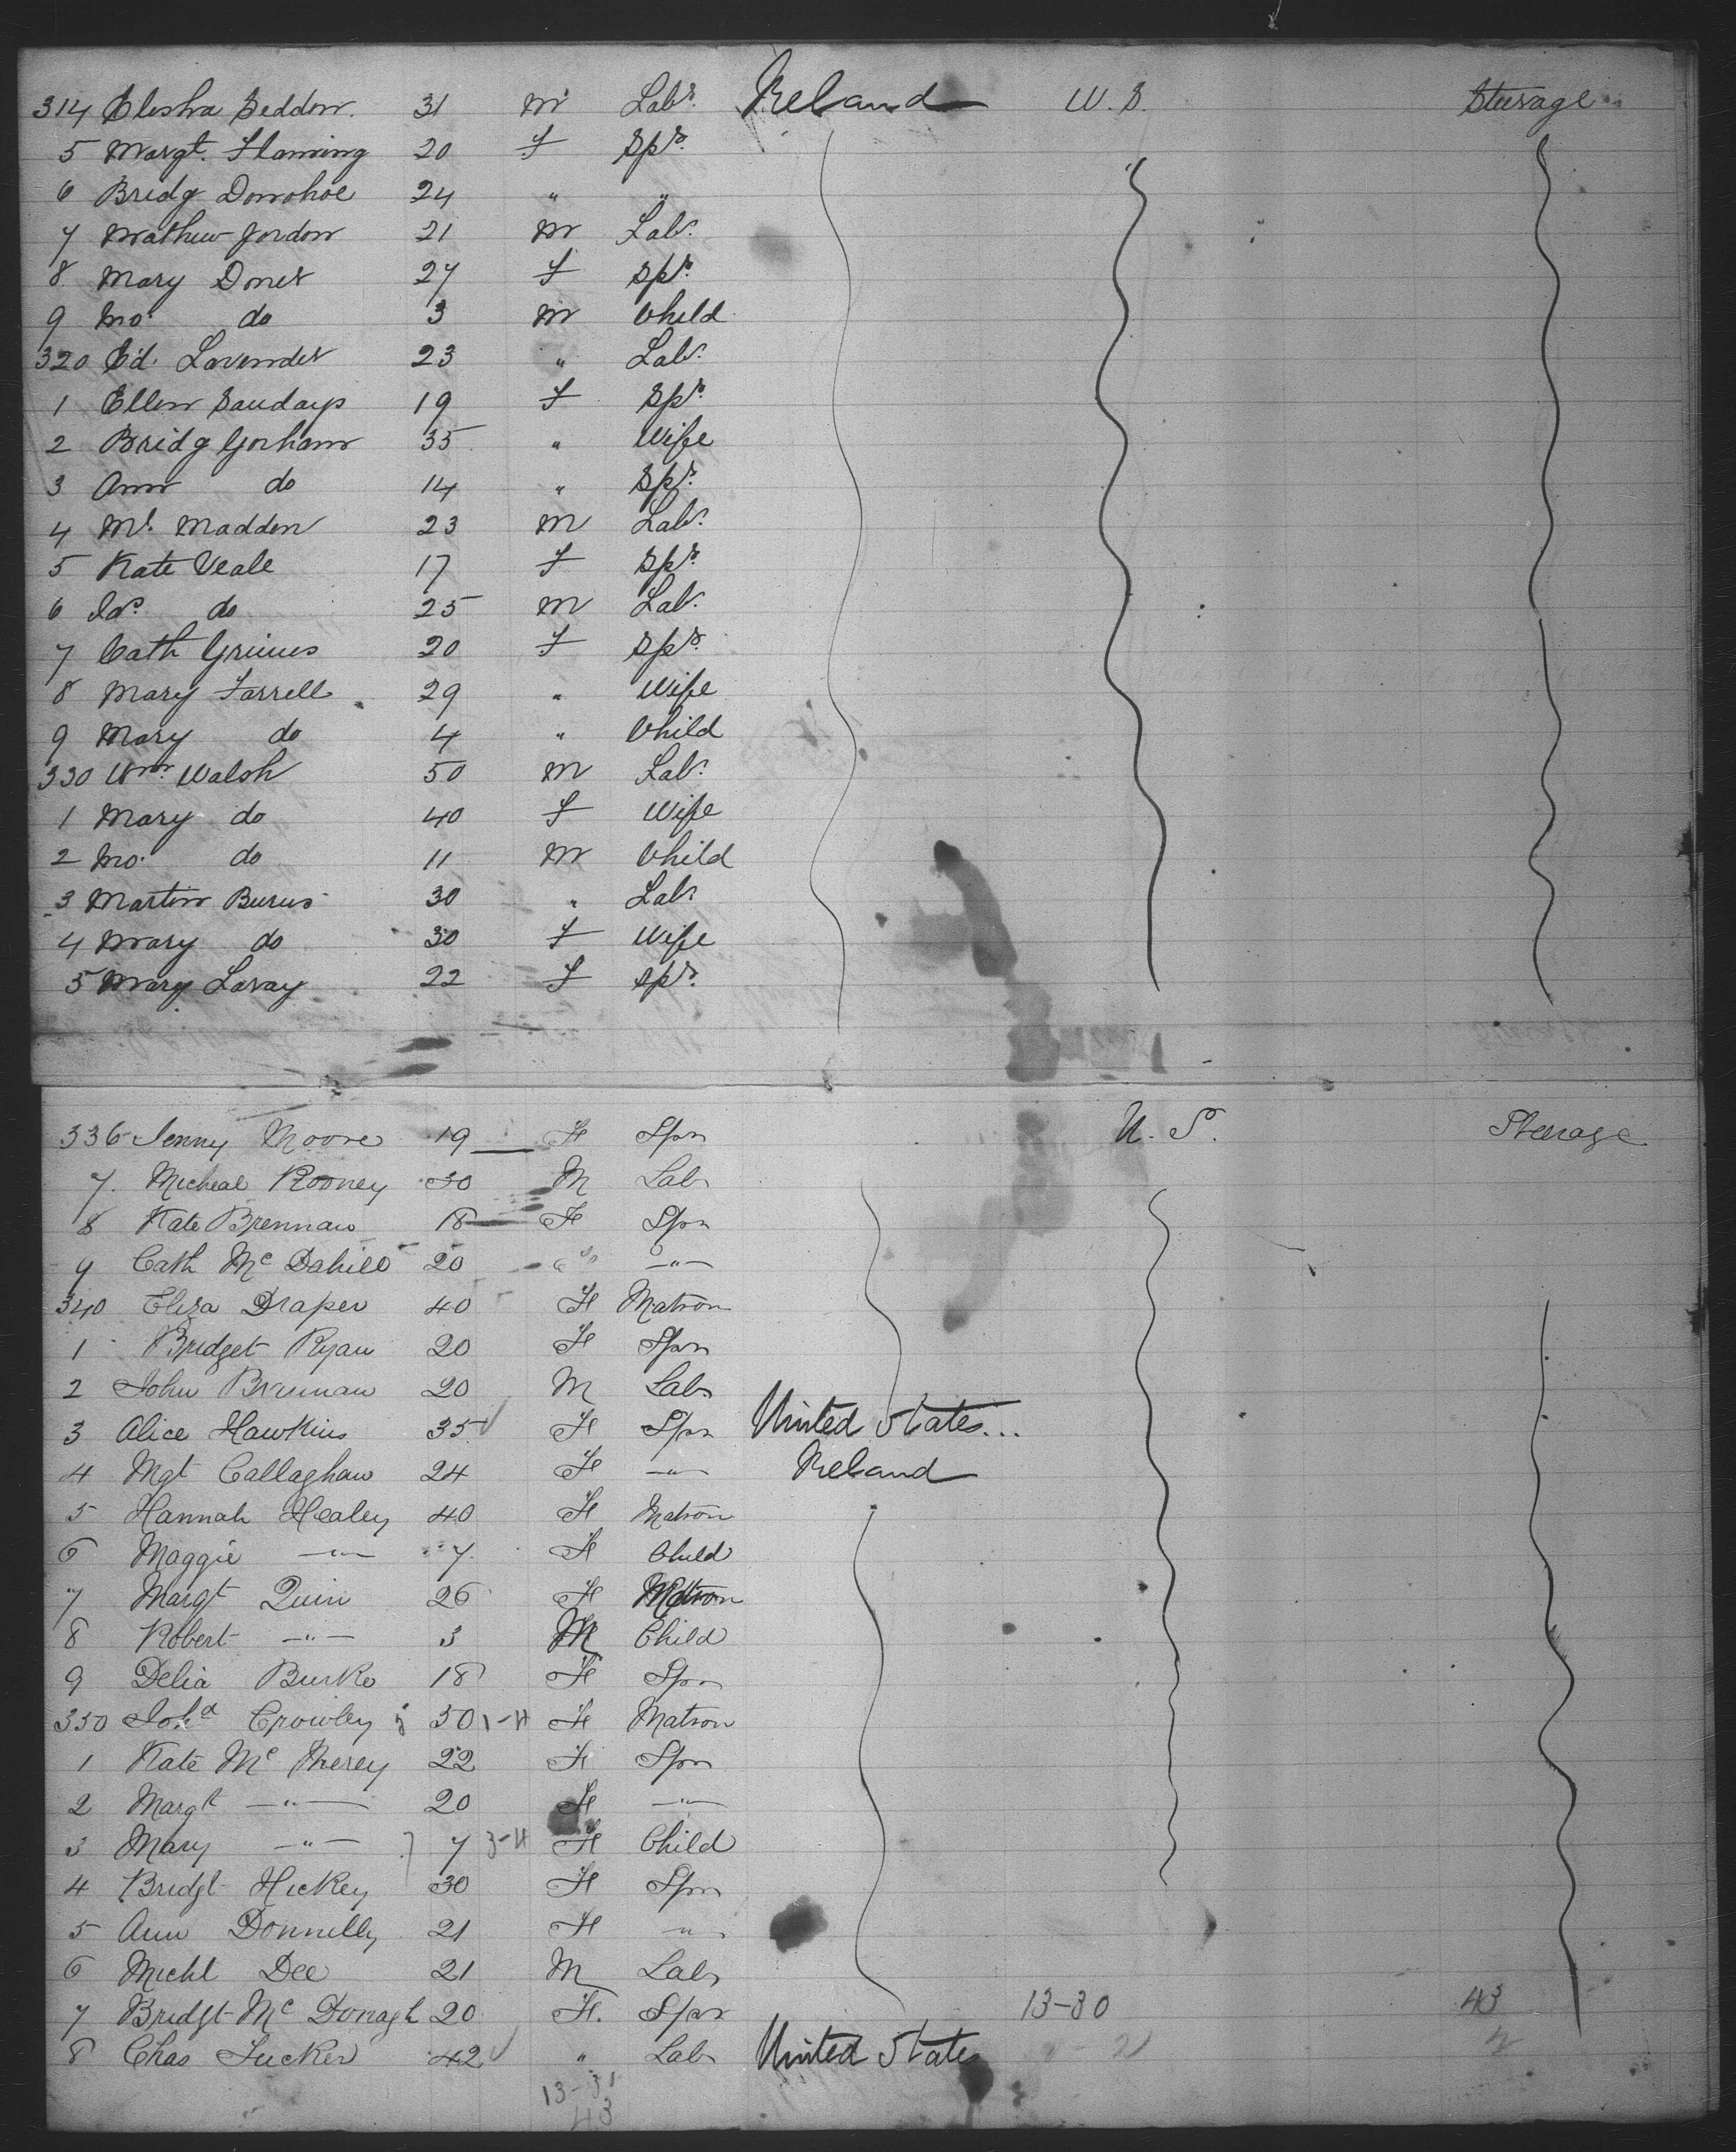 314 Elesha Seddon. 31 M Labr. Ireland U.S. Steerage
5 Margt. Flaming 20 F Spr.
6 Bridg Donohoe 24 " "
7 Mathew Jordon 21 M Labr.
8 Mary Doner 27 F Spr.
9 Mo. do 3 M Child
320 Ed. Lavender 23 " Labr.
1 Ellen Sandays 19 F Spr.
2 Bridg Gorham 35 " Wife
3 Ann do 14 " Spr.
4 Ml. Madden 23 M Labr.
5 Kate Veale 17 F Spr.
6 do 25 M Labr.
7 Cath Grimes 20 F Spr.
8 Mary Farrell 29 " Wife
9 Mary do 4 " Child
330 Wm. Walsh 50 M Labr.
1 Mary do 40 F Wife
2 Mo. do 11 M Child
3 Martin Burns 30 " Labr
4 Mary do 30 F Wife
5 Mary Lavay 22 F Spr.
336 Jenny Moore 19 F Spn U.S. Steerage
7. Micheal Rooney 30 M Lab
8 Kate Brennan 18 F Spn
9 Cath Mc Dahill 20 " —"—
340 Eliza Draper 40 F Matron
1 Bridget Ryan 20 F Spn
2 John Brennan 20 M Lab
3 Alice Hawkins 35 ✓ F Spn United States...
4 Mgt Callaghan 24 F —"— Ireland
5 Hannah Healey 40 F Matron
6 Maggie —"— 7 F Child
7 Margt Quin 26 F Matron
8 Robert —"— 3 M Child
9 Delia Burke 18 F Spn
350 Joha Crowley 50 1-H F Matron
1 Kate Mc 22 F Spn
2 Margt —"— 20 F —"—
3 Mary —"— 7 3-H F Child
4 Bridgt Hickey 30 F Spn
5 Ann Donnelly 21 F "
6 Michl Dee 21 M Lab
7 Bridgt Mc Donagh 20 F. Spn 13-30 43
8 Chas Tucker 42 ✓ " Lab United States 2
13-31
43